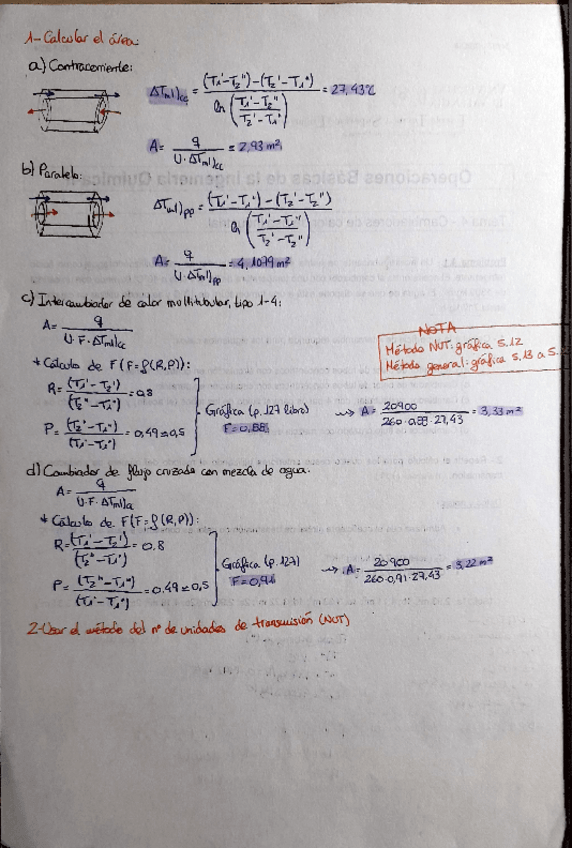 1- Calcular el área:
a) Contracorriente:
ΔTml)cc = (T1' - T2'') - (T2' - T1'') / ln((T1' - T2'') / (T2' - T1'')) = 27,43°C
A = q / (U · ΔTml)cc) = 2,93 m²
b) Paralelo:
ΔTml)pp = (T1' - T1'') - (T2' - T2'') / ln((T1' - T1'') / (T2' - T2''))
A = q / (U · ΔTml)pp) = 4,1079 m²
c) Intercambiador de calor multitubular, tipo 1-4:
A = q / (U · F · ΔTml)cc)
NOTA
Método NUT: gráfica 5.12
Método general: gráfica 5.13 a 5.
* Cálculo de F (F = f(R,P)):
R = (T1' - T2') / (T2'' - T1'') = 0,8
P = (T2'' - T1'') / (T1' - T1'') = 0,49 ≃ 0,5
Gráfica (p. 127 libro)
F = 0,88
⇝ A = 20900 / (260 · 0,88 · 27,43) = 3,33 m²
d) Cambiador de flujo cruzado con mezcla de agua:
A = q / (U · F · ΔTml)cc)
* Cálculo de F (F = f(R,P)):
R = (T1' - T2') / (T2'' - T1'') = 0.8
P = (T2'' - T1'') / (T1' - T1'') = 0,49 ≃ 0,5
Gráfica (p. 127)
F = 0,91
⇝ A = 20900 / (260 · 0,91 · 27,43) = 3,22 m²
2- Usar el método del nº de unidades de transmisión (NUT)